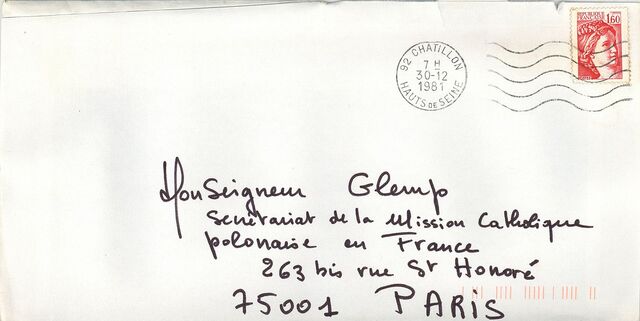 1,60
92 CHATILLON
7 H
30-12
1981
HAUTS DE SEINE
Monseigneur Glemp
Secrétariat de la Mission Catholique
polonaise en France
263 bis rue St Honoré
75001 PARIS